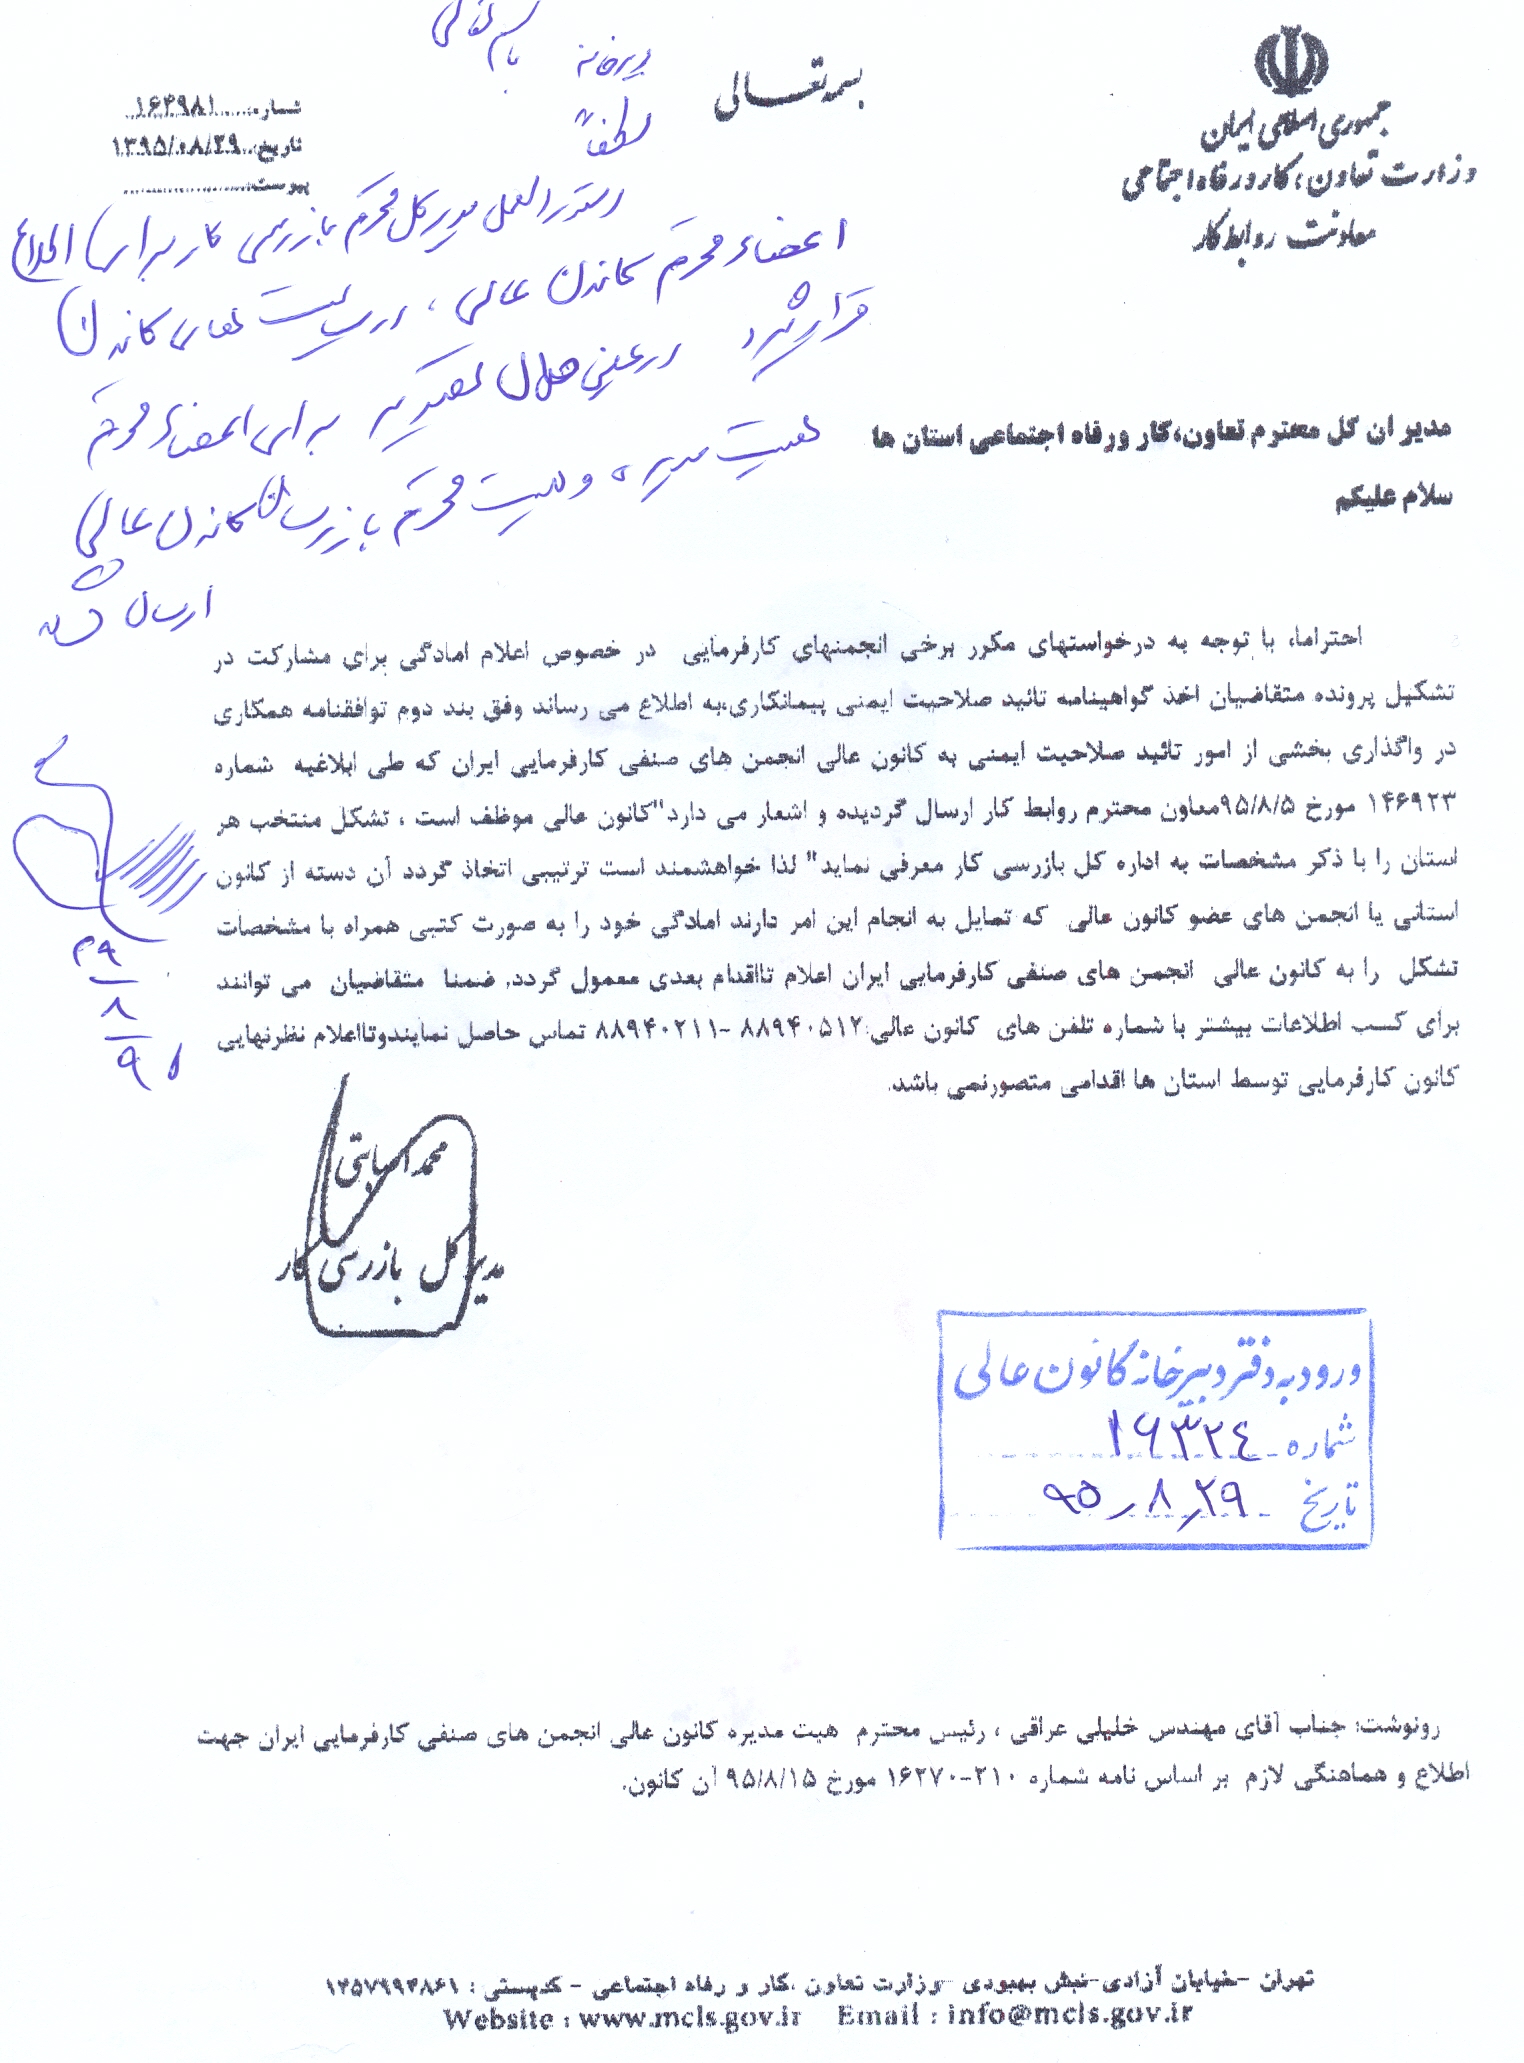 بسمه تعالی
جمهوری اسلامی ایران
وزارت تعاون، کار و رفاه اجتماعی
معاونت روابط کار
شماره ۱۶۴۹۸۱
تاریخ ۱۳۹۵/۰۸/۲۹
پیوست
باسمه تعالی
دبیرخانه
لطفاً
دستورالعمل مدیر کل محترم بازرسی کار برای اطلاع
اعضاء محترم کانون عالی، در سایت های کانون
قرار گیرد در عین حال برای اعضاء محترم
هیئت مدیره و هیئت محترم بازرسان کانون عالی
ارسال شود
۲۹
۸
۹۵
مدیران کل محترم تعاون،کار ورفاه اجتماعی استان ها
سلام علیکم
احتراما، با توجه به درخواستهای مکرر برخی انجمنهای کارفرمایی در خصوص اعلام امادگی برای مشارکت در
تشکیل پرونده متقاضیان اخذ گواهینامه تائید صلاحیت ایمنی پیمانکاری،به اطلاع می رساند وفق بند دوم توافقنامه همکاری
در واگذاری بخشی از امور تائید صلاحیت ایمنی به کانون عالی انجمن های صنفی کارفرمایی ایران که طی ابلاغیه شماره
۱۴۶۹۲۳ مورخ ۹۵/۸/۵معاون محترم روابط کار ارسال گردیده و اشعار می دارد"کانون عالی موظف است ، تشکل منتخب هر
استان را با ذکر مشخصات به اداره کل بازرسی کار معرفی نماید" لذا خواهشمند است ترتیبی اتخاذ گردد آن دسته از کانون
استانی یا انجمن های عضو کانون عالی که تمایل به انجام این امر دارند امادگی خود را به صورت کتبی همراه با مشخصات
تشکل را به کانون عالی انجمن های صنفی کارفرمایی ایران اعلام تااقدام بعدی معمول گردد. ضمنا متقاضیان می توانند
برای کسب اطلاعات بیشتر با شماره تلفن های کانون عالی:۸۸۹۴۰۵۱۲ -۸۸۹۴۰۲۱۱ تماس حاصل نمایندوتااعلام نظرنهایی
کانون کارفرمایی توسط استان ها اقدامی متصورنمی باشد.
مدیر کل بازرسی کار
ورود به دفتر دبیرخانه کانون عالی
شماره ۱۶۳۲۴
تاریخ ۹۵/۸/۲۹
رونوشت: جناب آقای مهندس خلیلی عراقی ، رئیس محترم هیت مدیره کانون عالی انجمن های صنفی کارفرمایی ایران جهت
اطلاع و هماهنگی لازم بر اساس نامه شماره ۲۱۰-۱۶۲۷۰ مورخ ۹۵/۸/۱۵ آن کانون.
تهران -خیابان آزادی-نبش بهبودی -وزارت تعاون ،کار و رفاه اجتماعی - کدپستی : ۱۴۵۷۹۹۴۸۶۱
Website : www.mcls.gov.ir Email : info@mcls.gov.ir